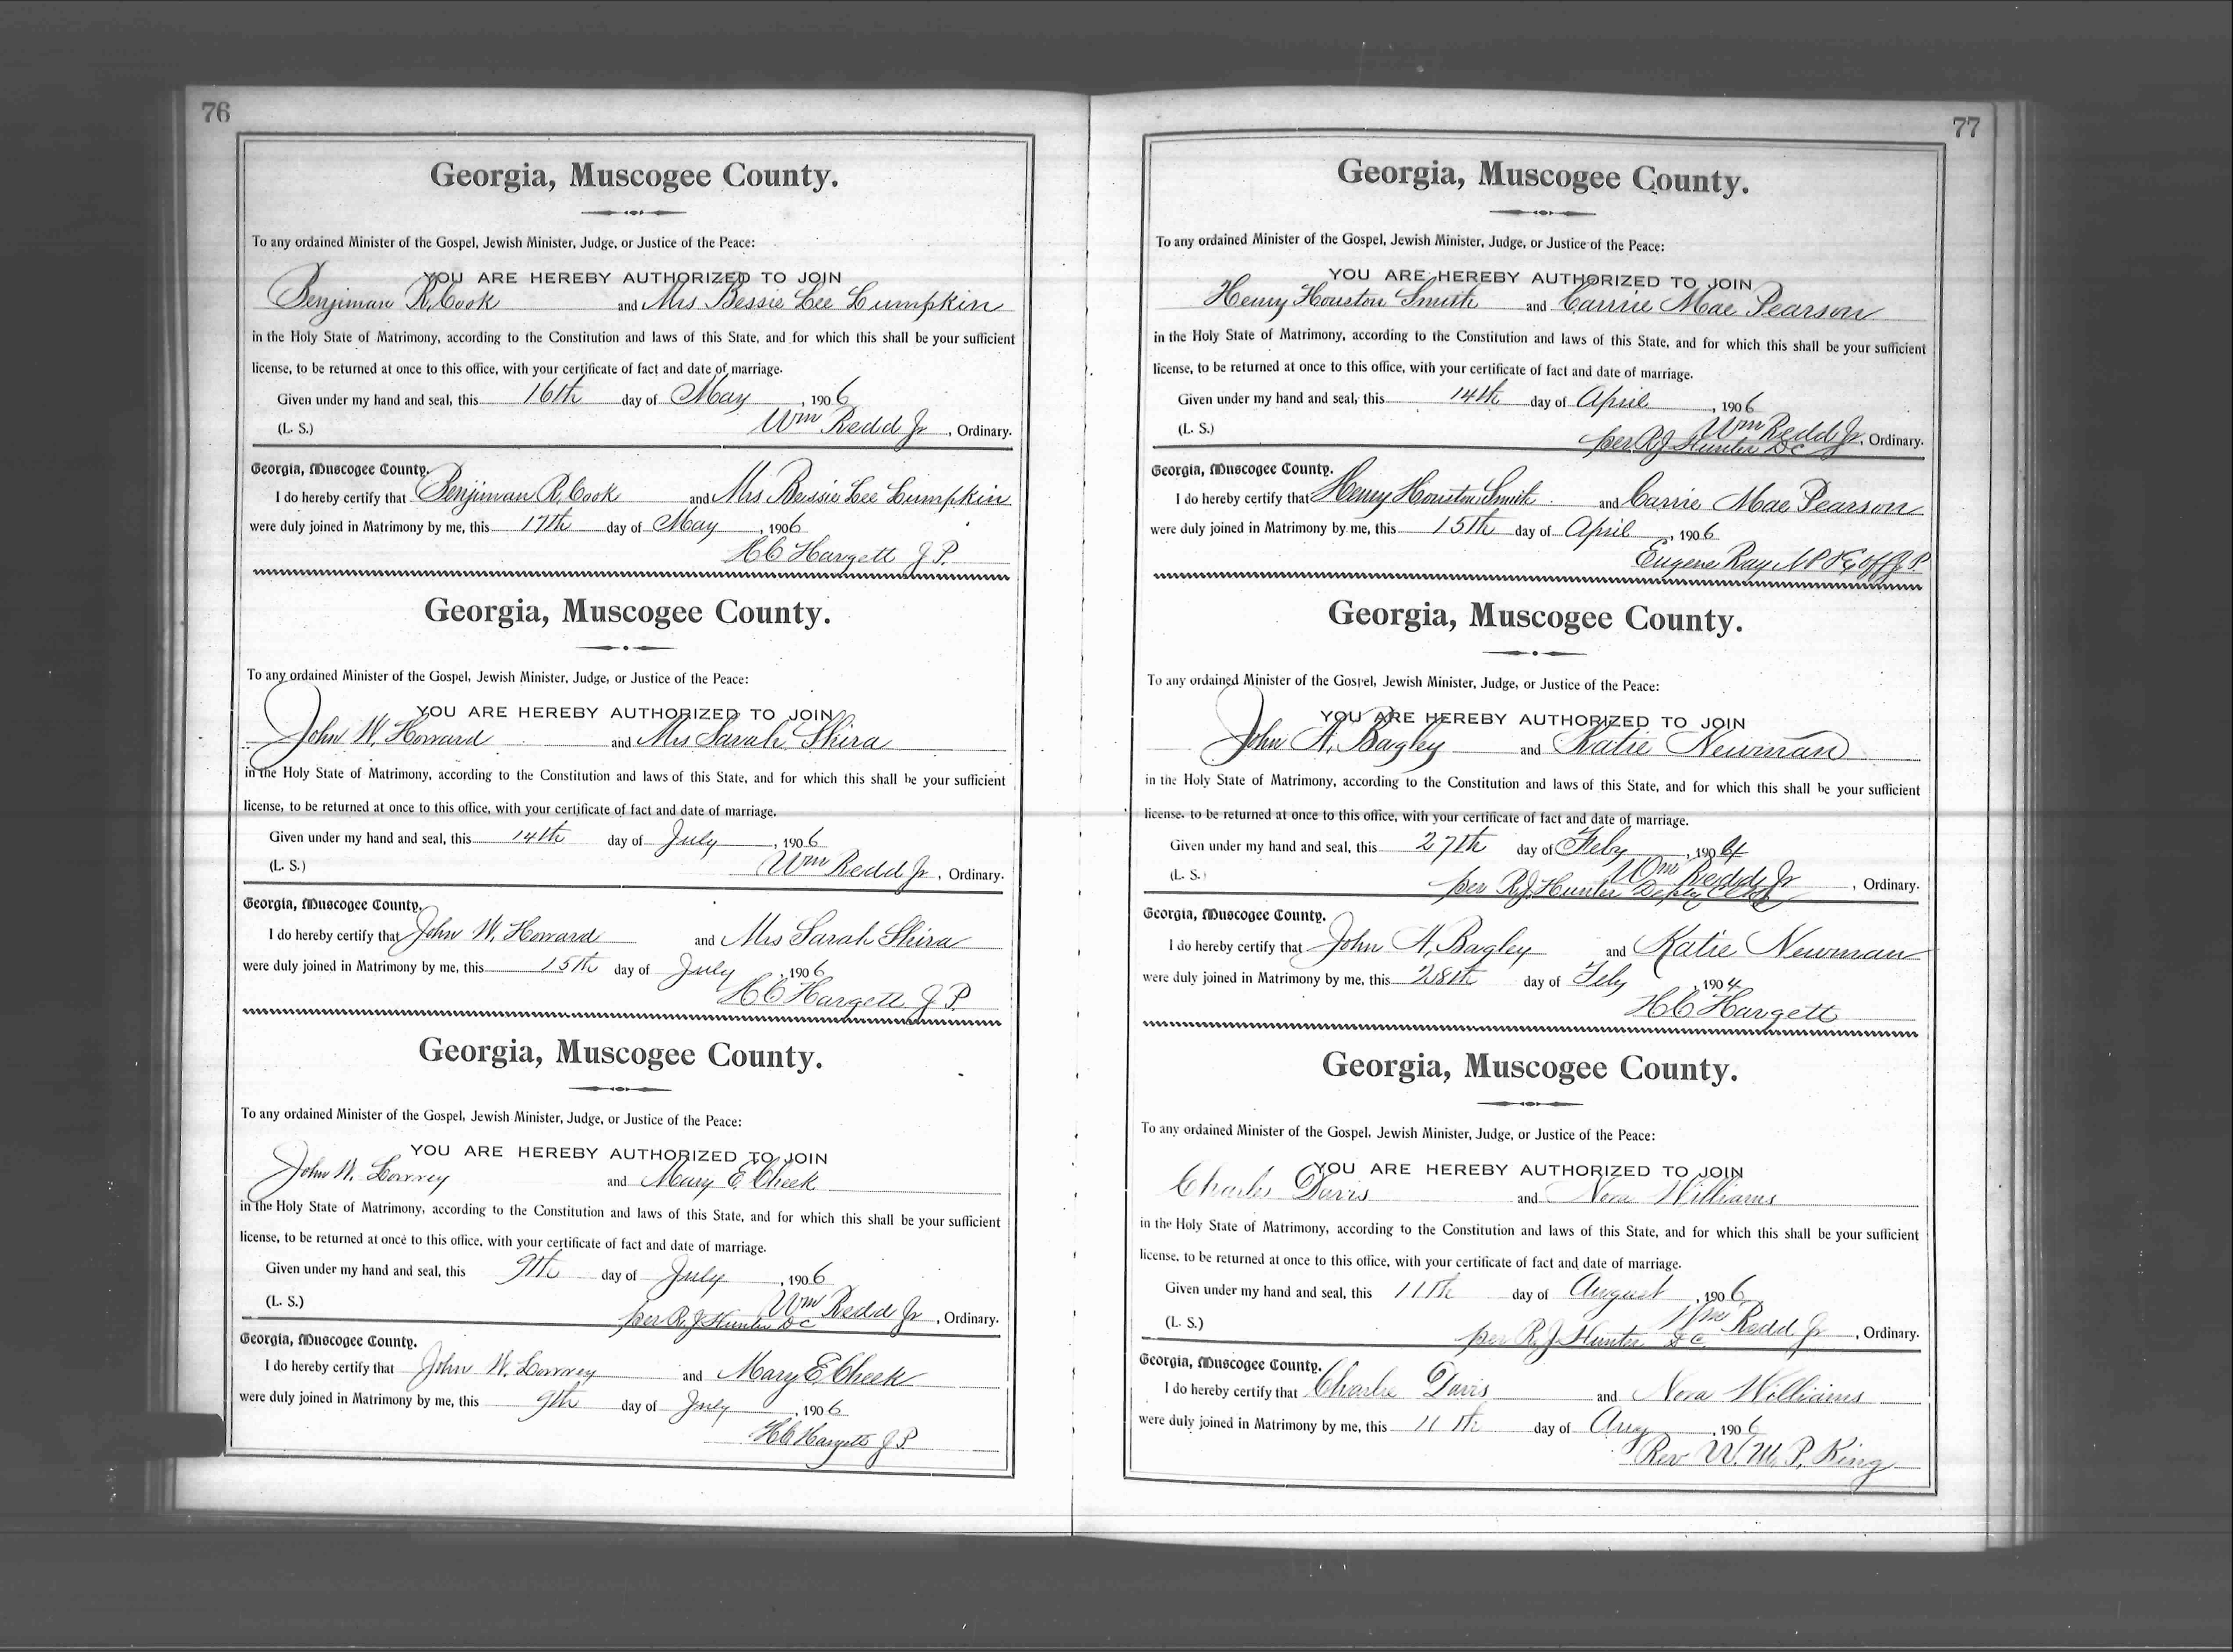 76
Georgia, Muscogee County.
To any ordained Minister of the Gospel, Jewish Minister, Judge, or Justice of the Peace:
YOU ARE HEREBY AUTHORIZED TO JOIN
Benjiman R. Cook and Mrs Bessie Lee Lumpkin
in the Holy State of Matrimony, according to the Constitution and laws of this State, and for which this shall be your sufficient
license, to be returned at once to this office, with your certificate of fact and date of marriage.
Given under my hand and seal, this 16th day of May, 1906
(L. S.) Wm Redd Jr, Ordinary.
Georgia, Muscogee County.
I do hereby certify that Benjiman R. Cook and Mrs Bessie Lee Lumpkin
were duly joined in Matrimony by me, this 17th day of May, 1906
H C Hargett J P.
Georgia, Muscogee County.
To any ordained Minister of the Gospel, Jewish Minister, Judge, or Justice of the Peace:
YOU ARE HEREBY AUTHORIZED TO JOIN
John W. Howard and Mrs Sarah Shira
in the Holy State of Matrimony, according to the Constitution and laws of this State, and for which this shall be your sufficient
license, to be returned at once to this office, with your certificate of fact and date of marriage.
Given under my hand and seal, this 14th day of July, 1906
(L. S.) Wm Redd Jr, Ordinary.
Georgia, Muscogee County.
I do hereby certify that John W. Howard and Mrs Sarah Shira
were duly joined in Matrimony by me, this 15th day of July, 1906
H C Hargett J P.
Georgia, Muscogee County.
To any ordained Minister of the Gospel, Jewish Minister, Judge, or Justice of the Peace:
YOU ARE HEREBY AUTHORIZED TO JOIN
John W. Lowrey and Mary E. Cheek
in the Holy State of Matrimony, according to the Constitution and laws of this State, and for which this shall be your sufficient
license, to be returned at once to this office, with your certificate of fact and date of marriage.
Given under my hand and seal, this 9th day of July, 1906
(L. S.) Wm Redd Jr, Ordinary.
per R J Hunter D C
Georgia, Muscogee County.
I do hereby certify that John W. Lowrey and Mary E. Cheek
were duly joined in Matrimony by me, this 9th day of July, 1906
H C Hargett J P
77
Georgia, Muscogee County.
To any ordained Minister of the Gospel, Jewish Minister, Judge, or Justice of the Peace:
YOU ARE HEREBY AUTHORIZED TO JOIN
Henry Houston Smith and Carrie Mae Pearson
in the Holy State of Matrimony, according to the Constitution and laws of this State, and for which this shall be your sufficient
license, to be returned at once to this office, with your certificate of fact and date of marriage.
Given under my hand and seal, this 14th day of April, 1906
(L. S.) Wm Redd Jr, Ordinary.
per R J Hunter D C
Georgia, Muscogee County.
I do hereby certify that Henry Houston Smith and Carrie Mae Pearson
were duly joined in Matrimony by me, this 15th day of April, 1906
Eugene Ray N P & Ex off J. P.
Georgia, Muscogee County.
To any ordained Minister of the Gospel, Jewish Minister, Judge, or Justice of the Peace:
YOU ARE HEREBY AUTHORIZED TO JOIN
John A. Bagley and Katie Newman
in the Holy State of Matrimony, according to the Constitution and laws of this State, and for which this shall be your sufficient
license, to be returned at once to this office, with your certificate of fact and date of marriage.
Given under my hand and seal, this 27th day of Feby, 1904
(L. S.) Wm Redd Jr, Ordinary.
per R. J. Hunter Depty Clerk
Georgia, Muscogee County.
I do hereby certify that John A. Bagley and Katie Newman
were duly joined in Matrimony by me, this 28th day of Feby, 1904
H C Hargett
Georgia, Muscogee County.
To any ordained Minister of the Gospel, Jewish Minister, Judge, or Justice of the Peace:
YOU ARE HEREBY AUTHORIZED TO JOIN
Charles Davis and Nora Williams
in the Holy State of Matrimony, according to the Constitution and laws of this State, and for which this shall be your sufficient
license, to be returned at once to this office, with your certificate of fact and date of marriage.
Given under my hand and seal, this 11th day of August, 1906
(L. S.) Wm Redd Jr, Ordinary.
per R. J. Hunter D C.
Georgia, Muscogee County.
I do hereby certify that Charlie Davis and Nora Williams
were duly joined in Matrimony by me, this 11th day of Aug, 1906
Rev W. M. P. King